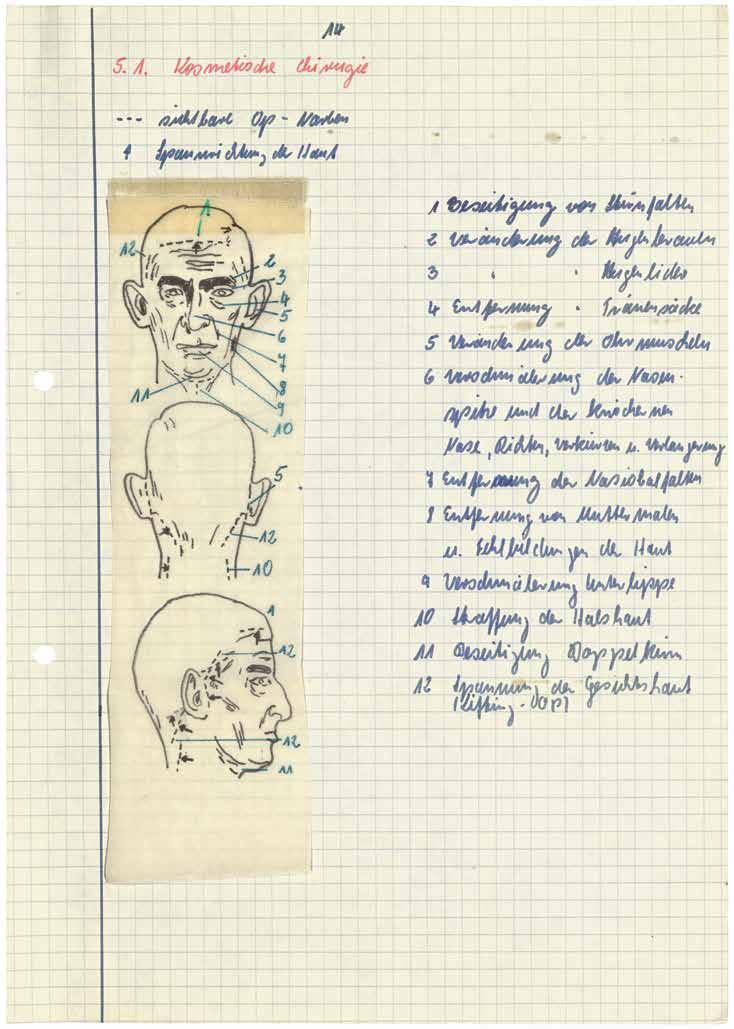 14
5.1. Kosmetische Chirurgie
--- sichtbare Op-Narben
↑ Spannrichtung der Haut
1 Beseitigung von Stirnfalten
2 Veränderung der Augenbrauen
3 " " Augenlider
4 Entfernung " Tränensäcke
5 Veränderung der Ohrmuscheln
6 Verschmälerung der Nasen-
spitze und der knöchernen
Nase, Richten, Verkürzen u. Verlängerung
7 Entfernung der Nasiobalfalten
8 Entfernung von Muttermalen
u. Fehlbildungen der Haut
9 Verschmälerung Unterlippe
10 Straffung der Halshaut
11 Beseitigung Doppelkinn
12 Spannung der Gesichtshaut
(Lifting-OP)
1
12
2
3
4
5
6
7
8
9
10
11
5
12
10
1
12
12
11